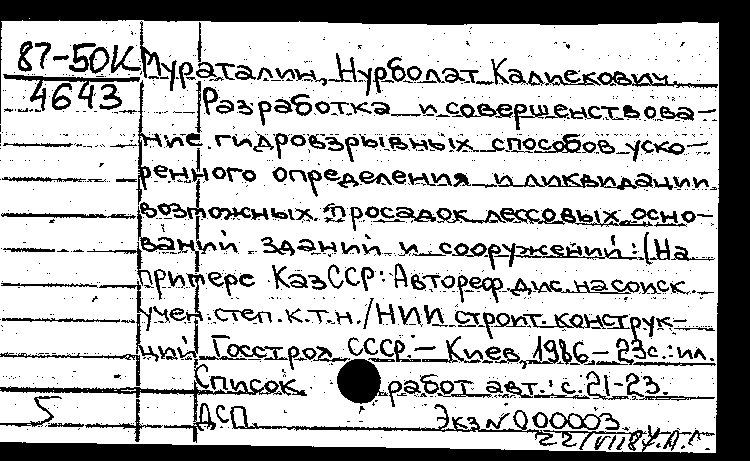 87-50К
4643
Мураталин, Нурболат Калиекович.
Разработка и совершенствова-
ние гидровзрывных способов уско-
ренного определения и ликвидации
возможных просадок лессовых осно-
ваний зданий и сооружений: (На
примере КазССР: Автореф. дис. на соиск.
учен. степ. к.т.н. / НИИ строит. конструк-
ций Госстроя СССР. – Киев, 1986 – 23с.: ил.
Список работ авт.: с. 21-23.
5 ДСП. Экз N 000003